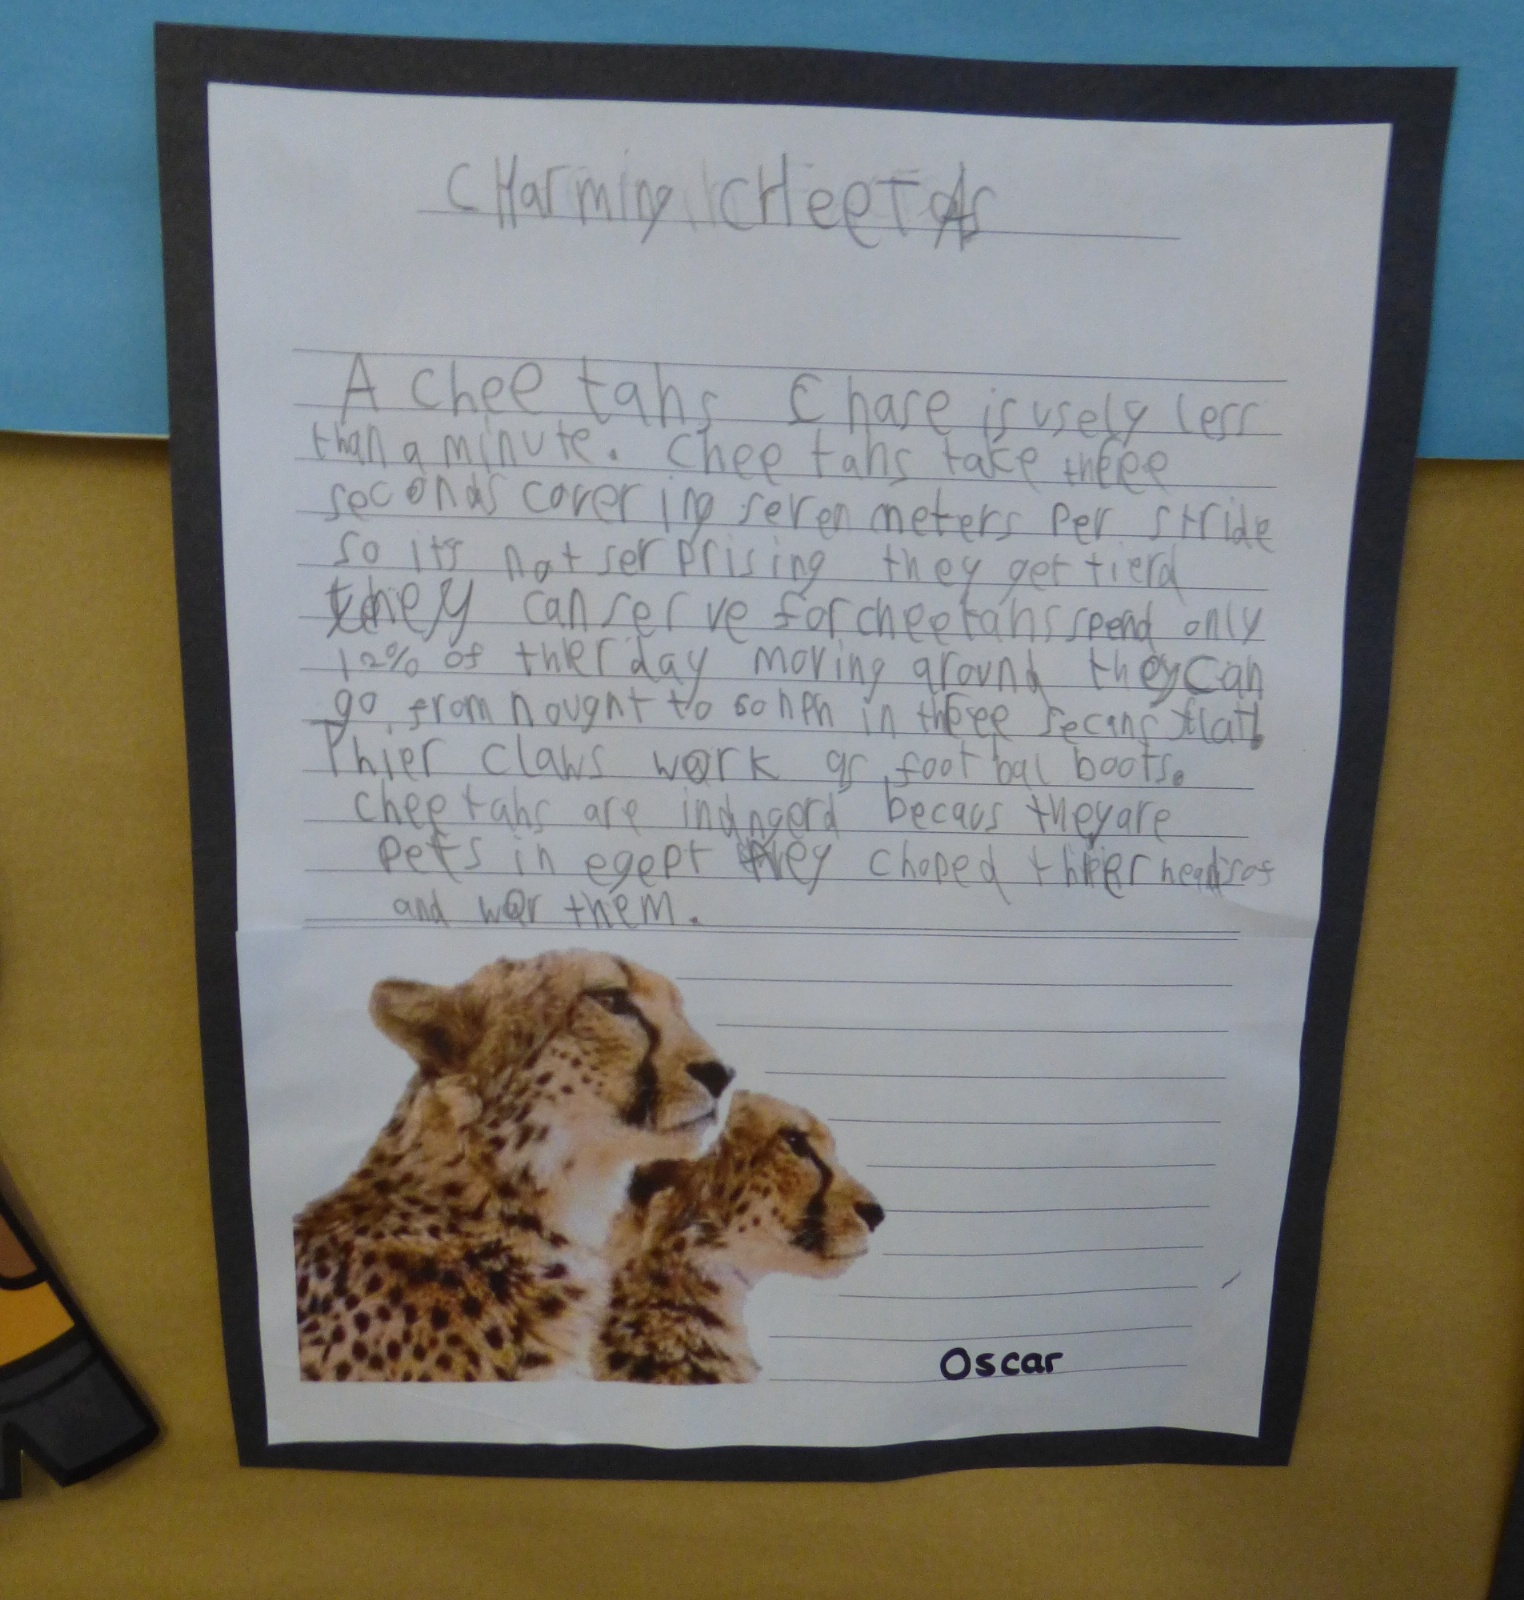 CHarming CHeeTAs
A cheetahs chase is usely less
than a minute. Cheetahs take three
seconds covering seven meters per stride
so its not serprising they get tierd
they canserve for cheetahs spend only
12% of thier day moving around they can
go from nought to 60 mph in three secans flat.
Thier claws work as footbal boots.
cheetahs are indngerd becaus they are
pets in egept they choped thier heads of
and wor them.
Oscar